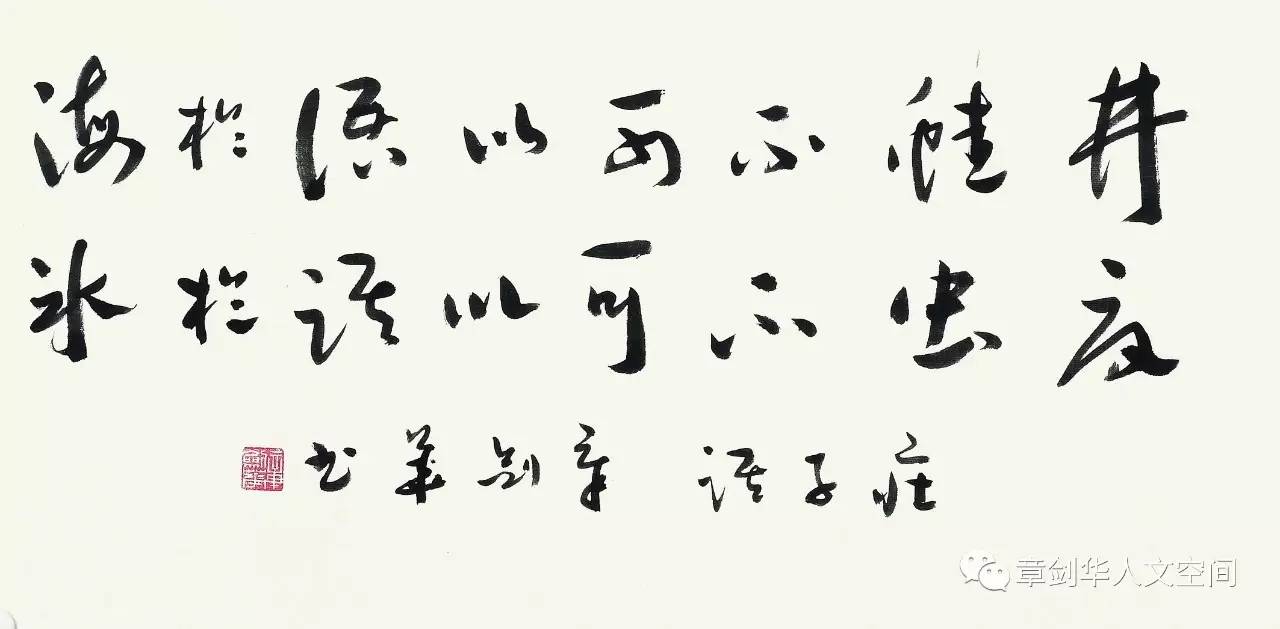 井蛙不可以语於海
夏虫不可以语於冰
莊子语 章剑華书
章剑华人文空间